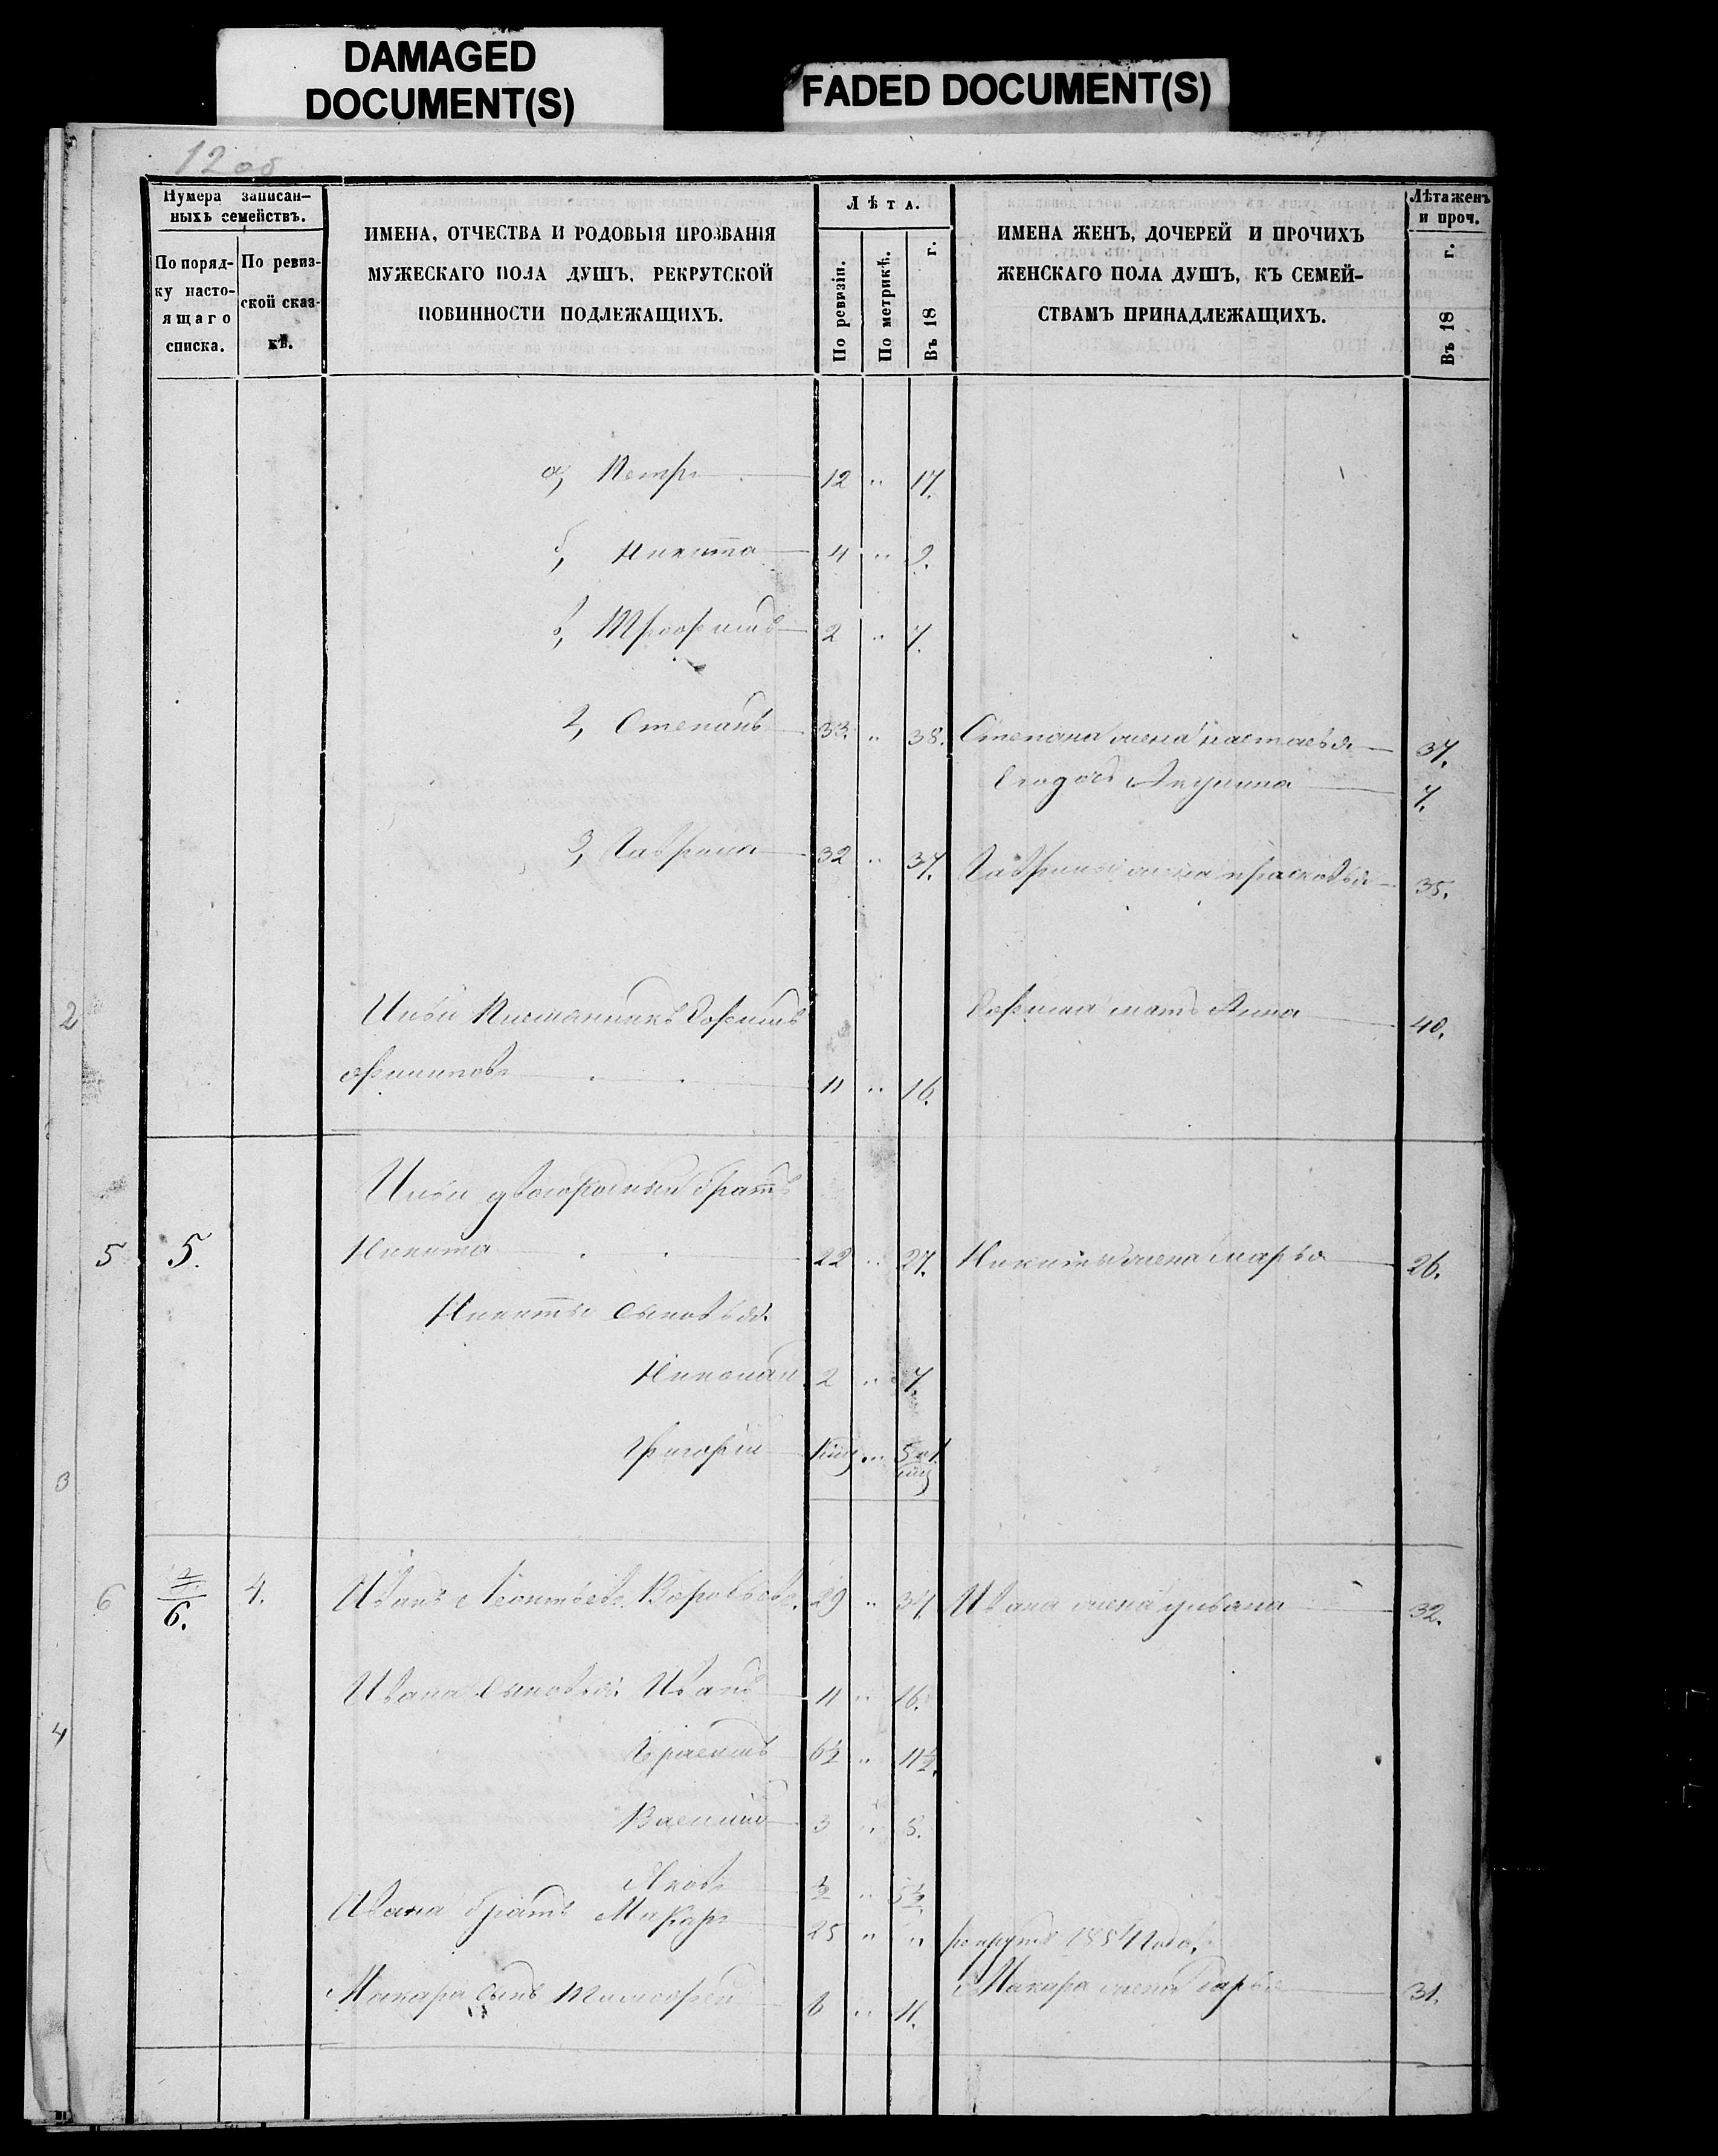 DAMAGED
DOCUMENT(S)
FADED DOCUMENT(S)
12 об
Нумера записан-
ныхъ семействъ.
По поряд-
ку насто-
ящаго
списка.
По ревиз-
ской сказ-
кѣ.
ИМЕНА, ОТЧЕСТВА И РОДОВЫЯ ПРОЗВАНІЯ
МУЖЕСКАГО ПОЛА ДУШЪ, РЕКРУТСКОЙ
ПОВИННОСТИ ПОДЛЕЖАЩИХЪ.
Лѣта.
По ревизіи.
По метрикѣ.
Въ 18 г.
ИМЕНА ЖЕНЪ, ДОЧЕРЕЙ И ПРОЧИХЪ
ЖЕНСКАГО ПОЛА ДУШЪ, КЪ СЕМЕЙ-
СТВАМЪ ПРИНАДЛЕЖАЩИХЪ.
Лѣта женъ
и проч.
Въ 18 г.
а, Петръ 12 " 17.
б, Никита 4 " 9.
в, Трофимъ 2 " 7.
2, Степанъ 33. " 38. Степана жена Настасья 37.
Его дочь Акулина 7.
3, Гаврила 32 " 37. Гаврилы жена Прасковья 35.
2
Ефима мать Анна 40.
11 " 16.
двоюродный братъ
5 5. Никита 22 " 27. Никиты жена Марья 26.
Никиты сыновья:
Николай 2 " 7.
Григорій
3
6 4. Иванъ Леонтьевъ Воробьевъ. 29 " 34 Ивана жена Ульяна 32.
Ивана сыновья: Иванъ 11 " 16.
Герасимъ 6½ " 11½.
4
Василій 3 " 8.
Яковъ ½ " 5½.
Ивана братъ Макаръ 25 " " рекрутъ 1854 года.
Макара сынъ Тимофей 6 " 11. Макара жена Дарья 31.